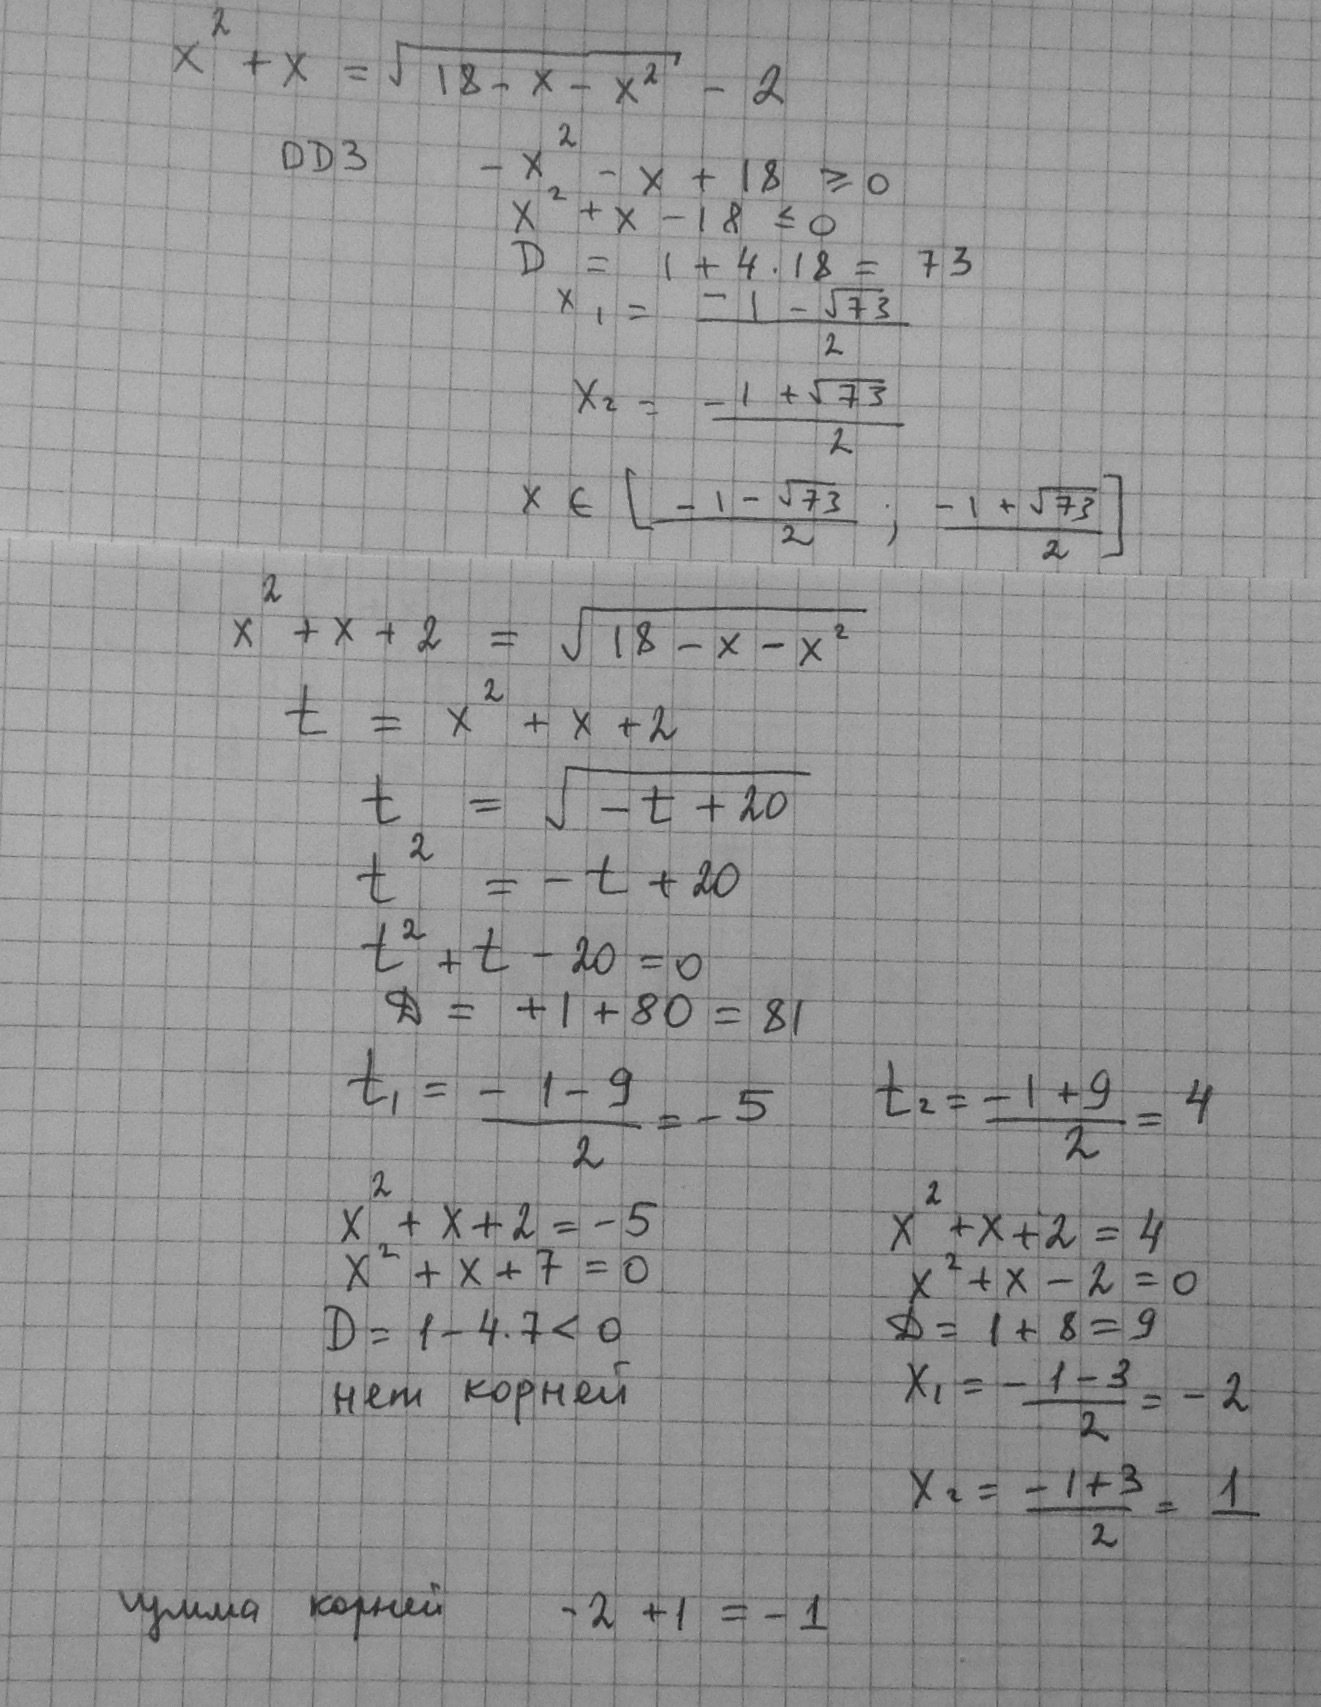 x² + x = √(18 - x - x²) - 2
ОДЗ -x² - x + 18 ≥ 0
x² + x - 18 ≤ 0
D = 1 + 4·18 = 73
x₁ = (-1 - √73)/2
x₂ = (-1 + √73)/2
x ∈ [(-1 - √73)/2 ; (-1 + √73)/2]
x² + x + 2 = √(18 - x - x²)
t = x² + x + 2
t = √(-t + 20)
t² = -t + 20
t² + t - 20 = 0
D = +1 + 80 = 81
t₁ = (-1 - 9)/2 = -5 t₂ = (-1 + 9)/2 = 4
x² + x + 2 = -5 x² + x + 2 = 4
x² + x + 7 = 0 x² + x - 2 = 0
D = 1 - 4·7 < 0 D = 1 + 8 = 9
нет корней x₁ = (-1 - 3)/2 = -2
x₂ = (-1 + 3)/2 = 1
сумма корней -2 + 1 = -1